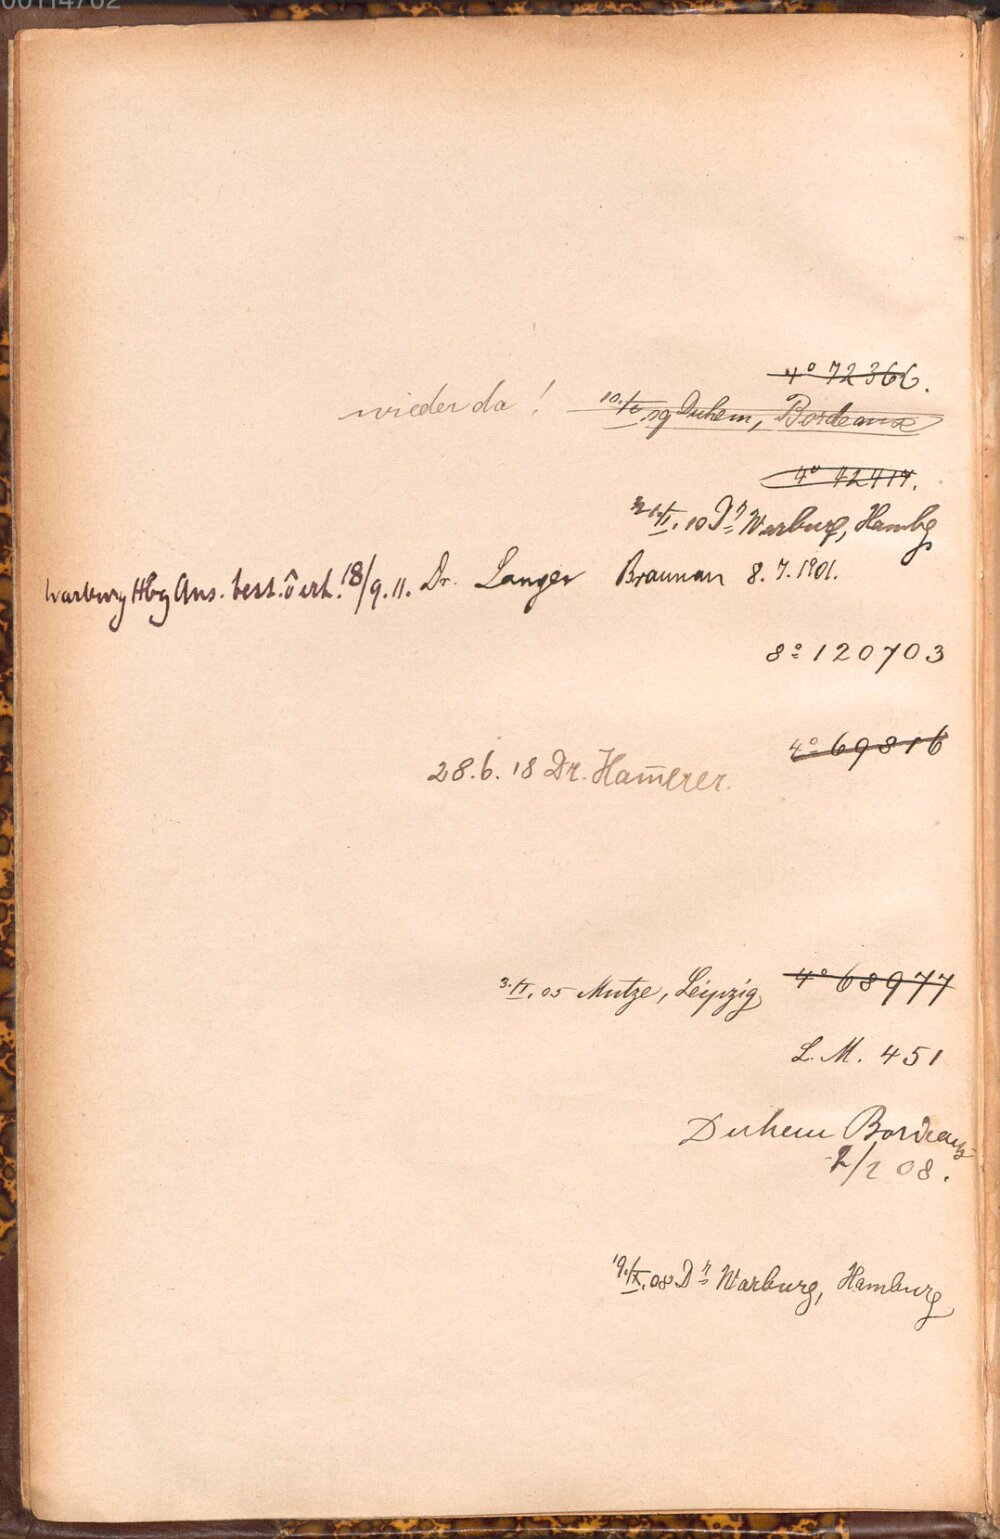 00114702
4° 72366.
wieder da !
10./V. 09 Duhem, Bordeaux
4° 72417.
21./II. 10 Dr Warburg, Hambg
Warburg Hbg Ans. best. 18/9.11.
Dr. Langer Braunau 8. 7. 1901.
8° 120703
4° 69816
28.6.18 Dr. Ham̅erer.
3./II. 05 Mutze, Leipzig
4° 68977
L. M. 451
Duhem Bordeaux
2/2 08.
19./X. 08 Dr Warburg, Hamburg